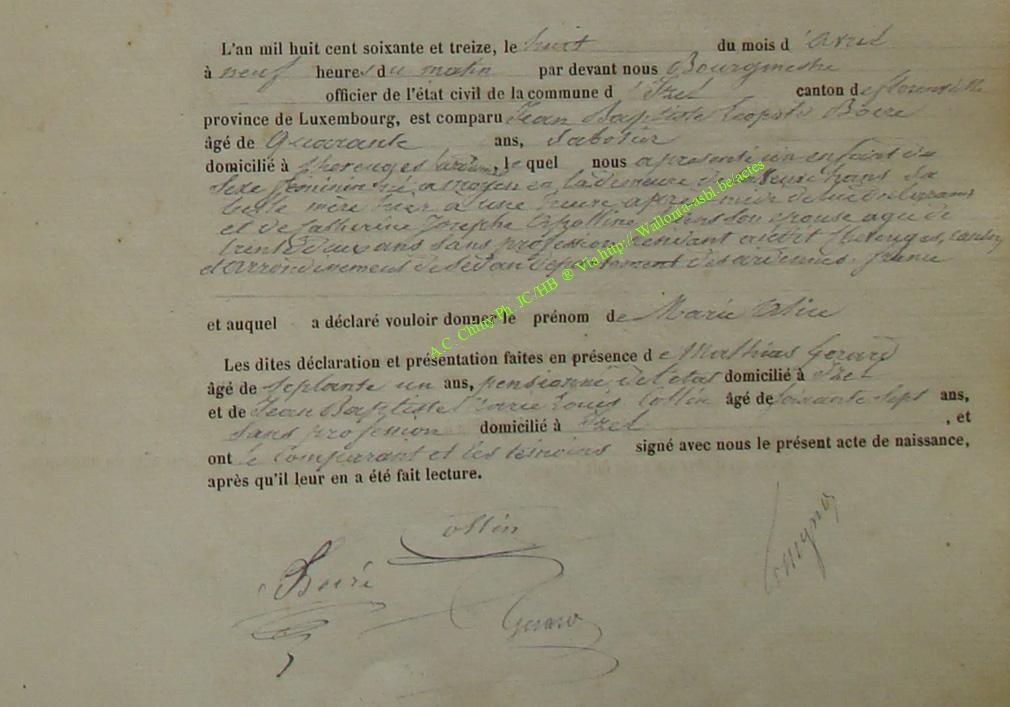 L'an mil huit cent soixante et treize, le huit du mois d'avril
à neuf heures du matin par devant nous Bourgmestre
officier de l'état civil de la commune d'Izel canton de florenville
province de Luxembourg, est comparu Jean Baptiste Léopold Boiré
âgé de Quarante ans, Sabotier
domicilié à lequel nous a présenté un enfant du
Sexe féminin né a moyen en la demeure de hans sa
belle mère hier a une heure après midi de lui déclarant
et de Catherine Josephe hans son épouse agée de
trente deux ans sans profession audit Cheveuges, canton
et arrondissement de Sedan département des ardennes. france
et auquel a déclaré vouloir donner le prénom de Marie
Les dites déclaration et présentation faites en présence de Mathias Gerard
âgé de septante un ans, pensionné de l'état domicilié à Izel
et de Jean Baptiste Marie Louis Collin âgé de soixante sept ans,
sans profession domicilié à Izel, et
ont le Comparant et les témoins signé avec nous le présent acte de naissance,
après qu'il leur en a été fait lecture.
Collin
Boiré
Gerard
A.C. Chiny Ph. JC/HB ® Via http:// Wallonia-asbl.be/actes